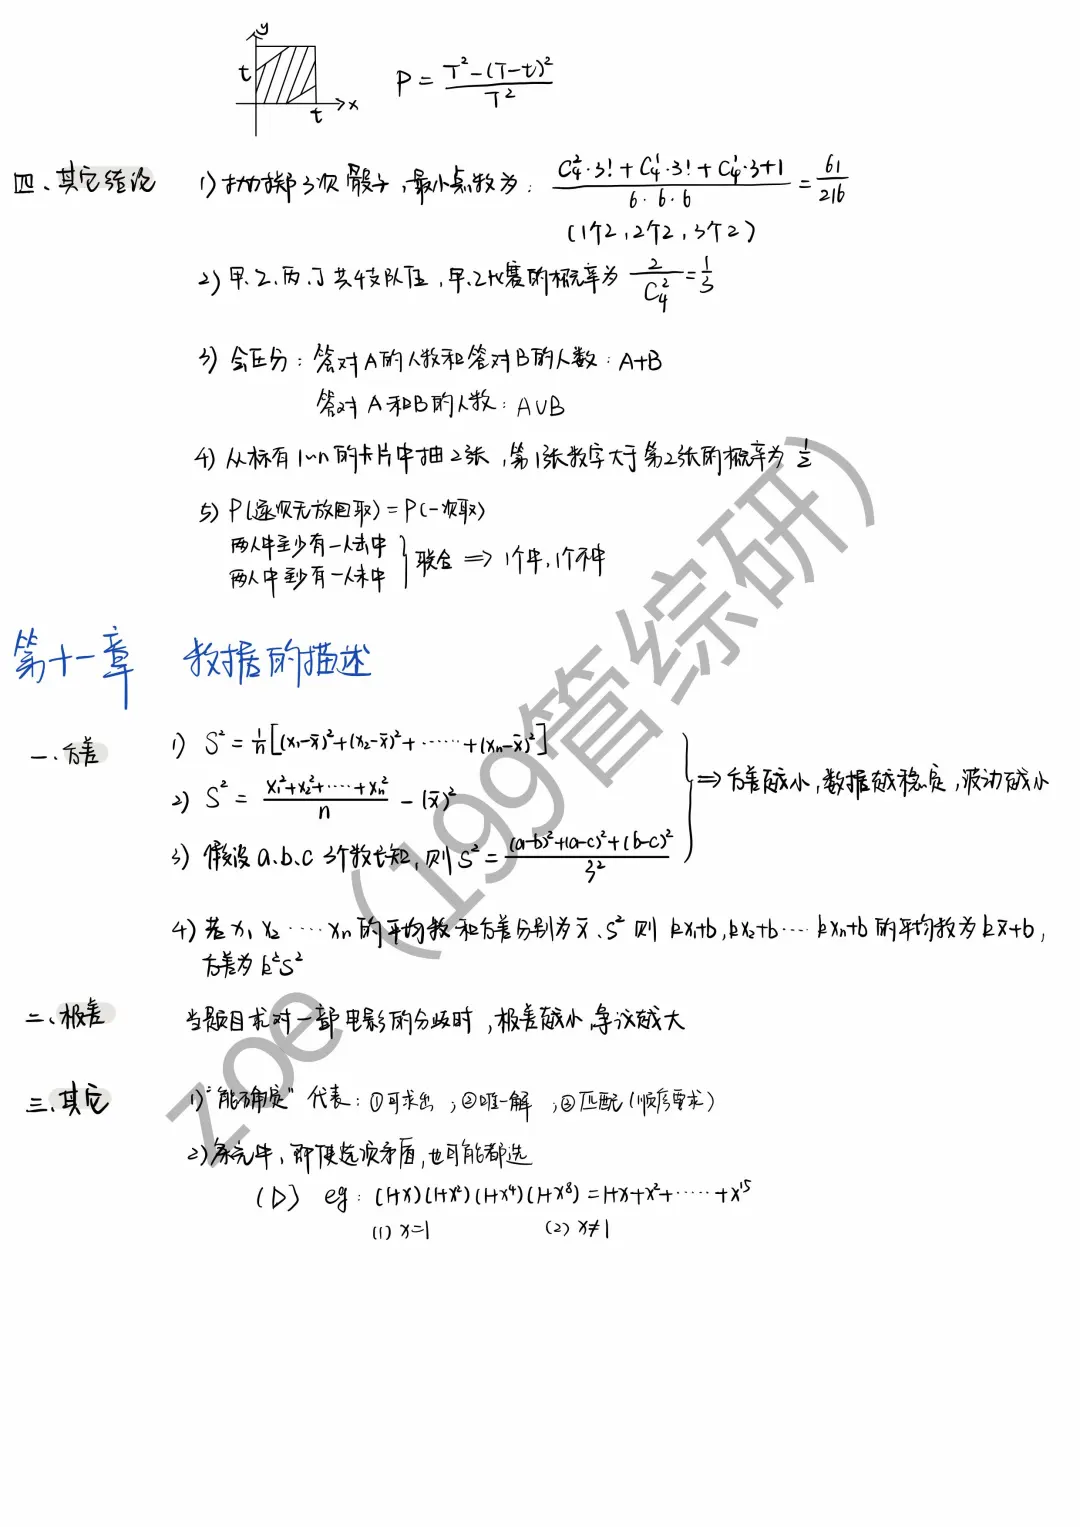 y
t
t
x
P = \frac{T²-(T-t)²}{T²}
四、其它结论
1) 抛掷3次骰子,最小点数为: \frac{C_4^2·3!+C_4^1·3!+C_4^1·3+1}{6·6·6} = \frac{61}{216}
(1个2,2个2,3个2)
2) 甲.乙.丙.丁共4支队伍,甲.乙比赛的概率为 \frac{2}{C_4^2} = \frac{1}{3}
3) 会区分:答对A的人数和答对B的人数:A+B
答对A和B的人数:A∪B
4) 从标有1~n的卡片中抽2张,第1张数字大于第2张的概率为 \frac{1}{2}
5) P(逐次无放回取)=P(一次取)
两人中至少有一人击中
两人中至少有一人未中
联合 ⟹ 1个中,1个不中
第十一章 数据的描述
一.方差
1) S²=\frac{1}{n}[(x₁-x̄)²+(x₂-x̄)²+······+(xₙ-x̄)²]
2) S² = \frac{x₁²+x₂²+····+xₙ²}{n} - (x̄)²
3) 假设a.b.c 3个数已知,则S²=\frac{(a-b)²+(a-c)²+(b-c)²}{3²}
⟹ 方差越小,数据越稳定,波动越小
4) 若x₁,x₂····xₙ的平均数和方差分别为x̄、S² 则 kx₁+b,kx₂+b···· kxₙ+b的平均数为kx̄+b,
方差为k²S²
二、极差
当题目求对一部电影的分歧时,极差越小,争议越大
三.其它
1)"能确定"代表:①可求出;②唯一解;③匹配(顺序要求)
2)条充中,即使选项矛盾,也可能都选
(D) eg:(1+x)(1+x²)(1+x⁴)(1+x⁸)=1+x+x²+·····+x¹⁵
(1) x=1 (2) x≠1
zoe(199管综研)